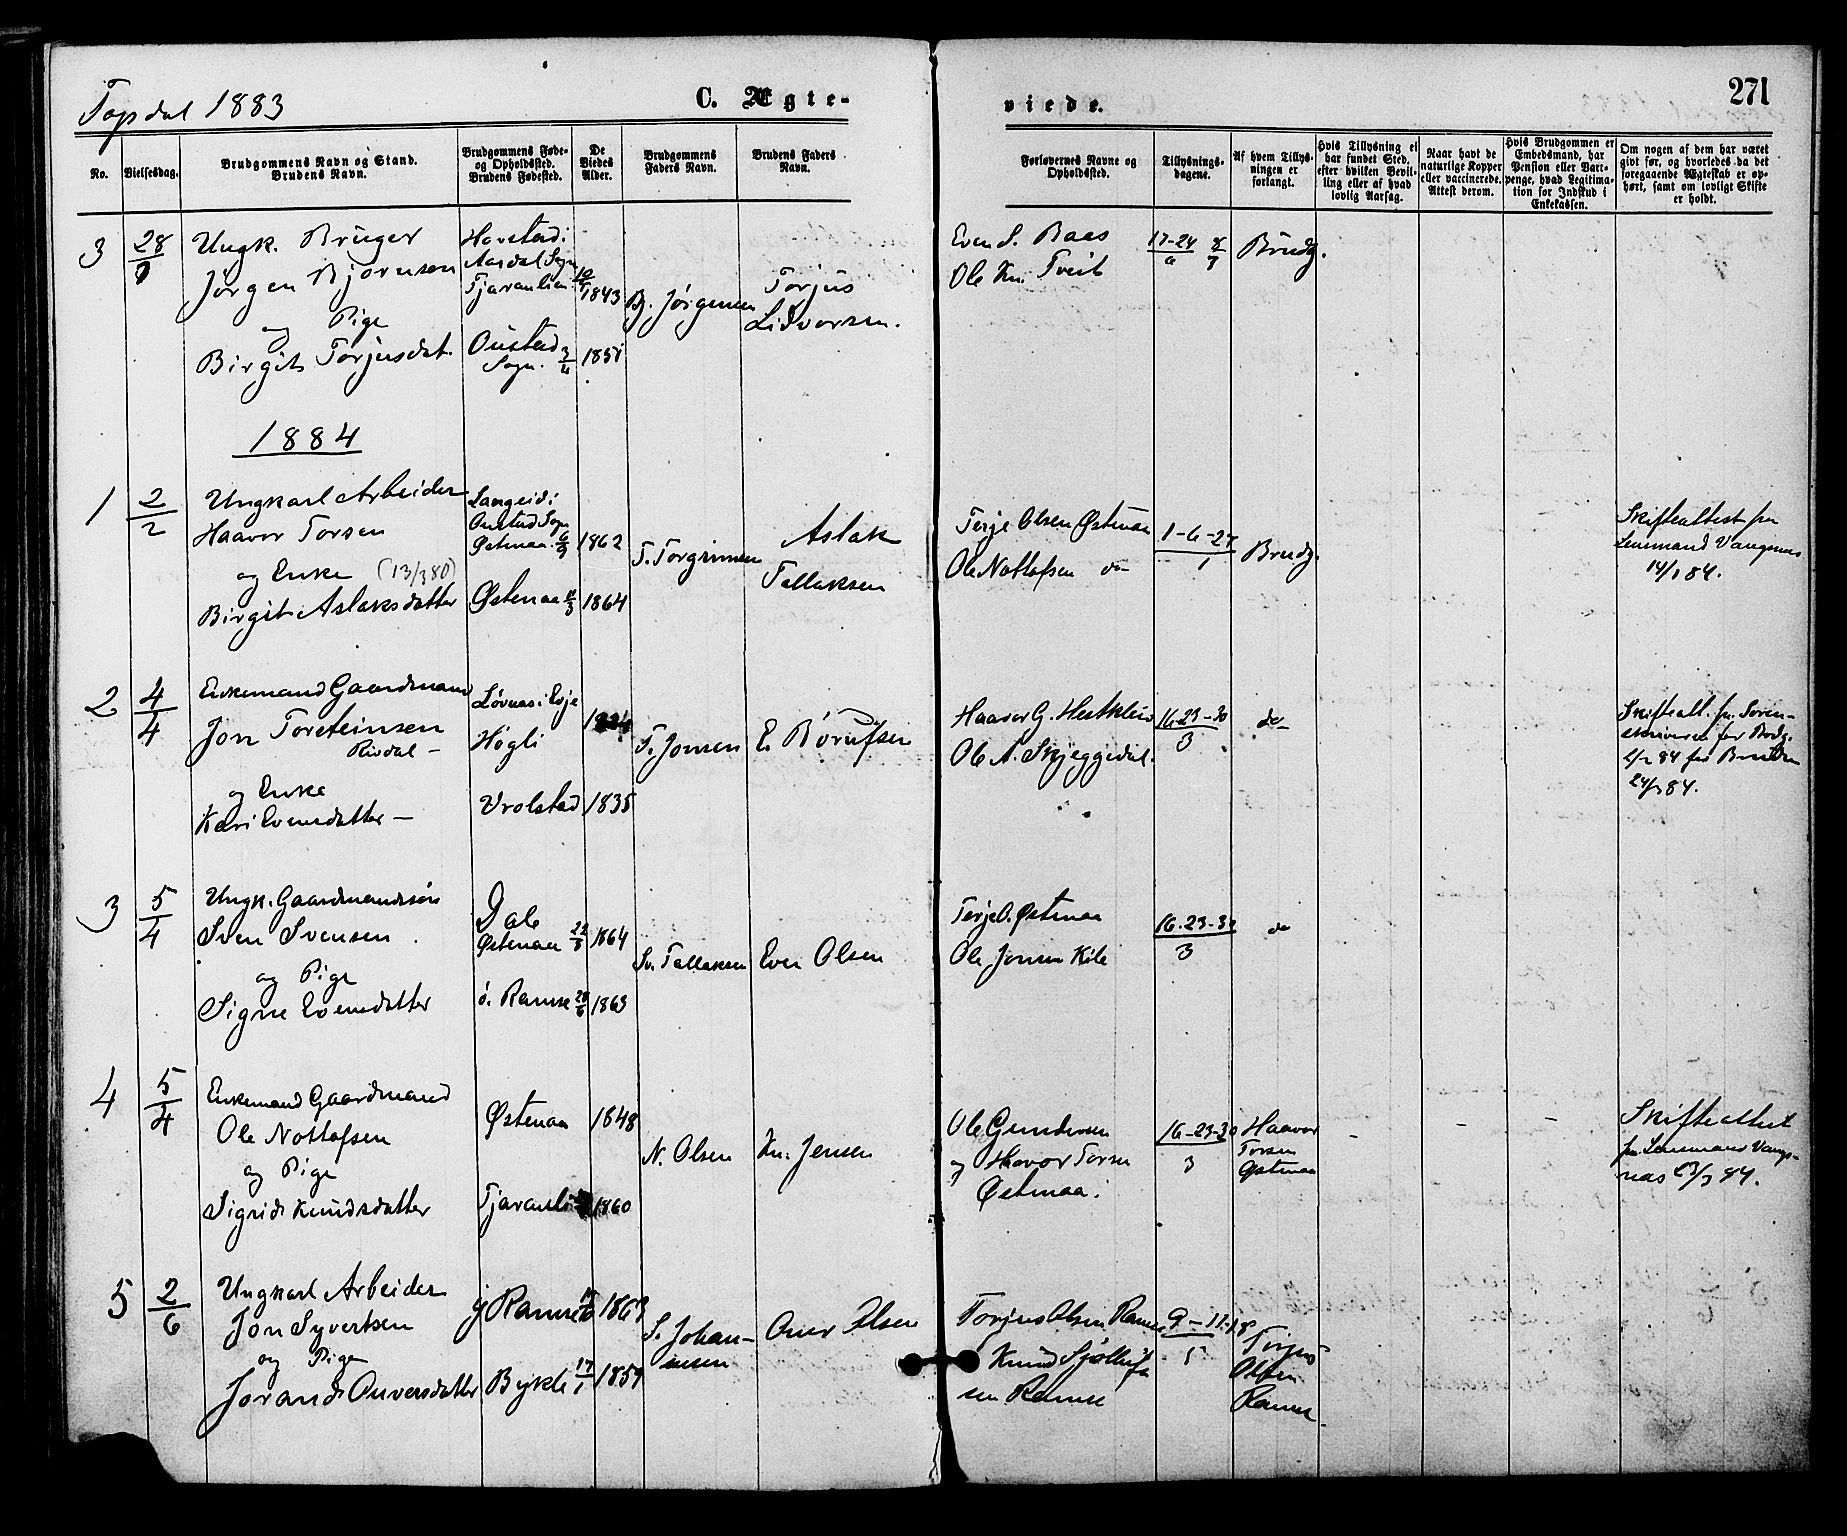 Topsdal 1883
C. Ægte-
viede.
271
No.
Vielsesdag.
Brudgommens Navn og Stand.
Brudens Navn.
Brudgommens Føde-
og Opholdssted.
Brudens Fødested.
De
Viedes
Alder.
Brudgommens
Faders Navn.
Brudens Faders
Navn.
Forlovernes Navne og
Opholdssted.
Tillysnings-
dagene.
Af hvem Tillys-
ningen er
forlangt.
Hvis Tillysning ei
har fundet Sted,
efter hvilken Bevil-
ling eller af hvad
lovlig Aarsag.
Naar havt de
naturlige Kopper
eller vaccinerede.
Attest derom.
Hvis Brudgommen er
Embedsmand, har
Pension eller Vart-
penge, hvad Legitima-
tion for Indskud i
Enkekassen.
Om nogen af dem har været
givt før, og hvorledes da det
foregaaende Ægteskab er op-
hørt, samt om lovligt Skifte
er holdt.
3 28/7
Ungk. Bruger
Jørgen Bjørnsen
og Pige
Birgit Torjusdat.
Aardal Sogn
Tjaraulien
1843
Sogn. 1851
Bj. Jørgensen
Torjus
Lidvorsen.
Even S. Baas
Ole Kn. Tveit
17-24/6 8/7
Brudg.
1884
1 2/2
Ungkarl Arbeider
Haavor Torsen
og Enke (13/380)
Birgit Aslaksdatter
Langeid i
Sogn
Østenaa 1862
Østenaa 1864
T. Torgrimsen
Aslak
Tallaksen
Terje Olsen Østenaa
Ole Nottofsen do
1-6-27/1
Brudg.
Skifteattest fra
Lensmand Vangsnes
14/1 84.
2 4/4
Enkemand Gaardmand
Jon Torsteinsen
Risdal -
og Enke
Kari Evensdatter -
Løvnas i Evje
Høgli
Vrolstad 1835
T. Jonsen
E. Børufsen
Haavor G. Hestklein
Ole A. Skjeggedal.
16-23-30/3
do
Skifteatt. fra Soren-
skriveren for Brudg.
84 for Bruden
24/3 84.
3 5/4
Ungk. Gaardmandssøn
Sven Svensen
og Pige
Signe Evensdatter
Dale
Østenaa 22/3 1864
ö. Ramse 20/6 1863
Sv. Tallaksen
Even Olsen
Terje O. Østenaa
Ole Jonsen Kile
16-23-30/3
do
4 5/4
Enkemand Gaardmand
Ole Nottofsen
og Pige
Sigrid Knudsdatter
Østenaa 1848
Tjarauli 1860
N. Olsen
Kn. Jensen
Ole Gundersen
og Haavor Torsen
Østenaa.
16-23-30/3
Haavor
Torsen
Østenaa
-
-
-
Skifteattest
fra Lensmand Vangs-
nes 13/3 84.
5 2/6
Ungkarl Arbeider
Jon Syvertsen
og Pige
Jorand Onversdatter
y Ramse 1863
Bykle 17/1 1859
S. Johan-
nesen
Onver Olsen
Torjus Olsen Ramse
Knud Sjøllufs
sen Ramse
9-11-18/5
Torjus
Olsen
Ramse